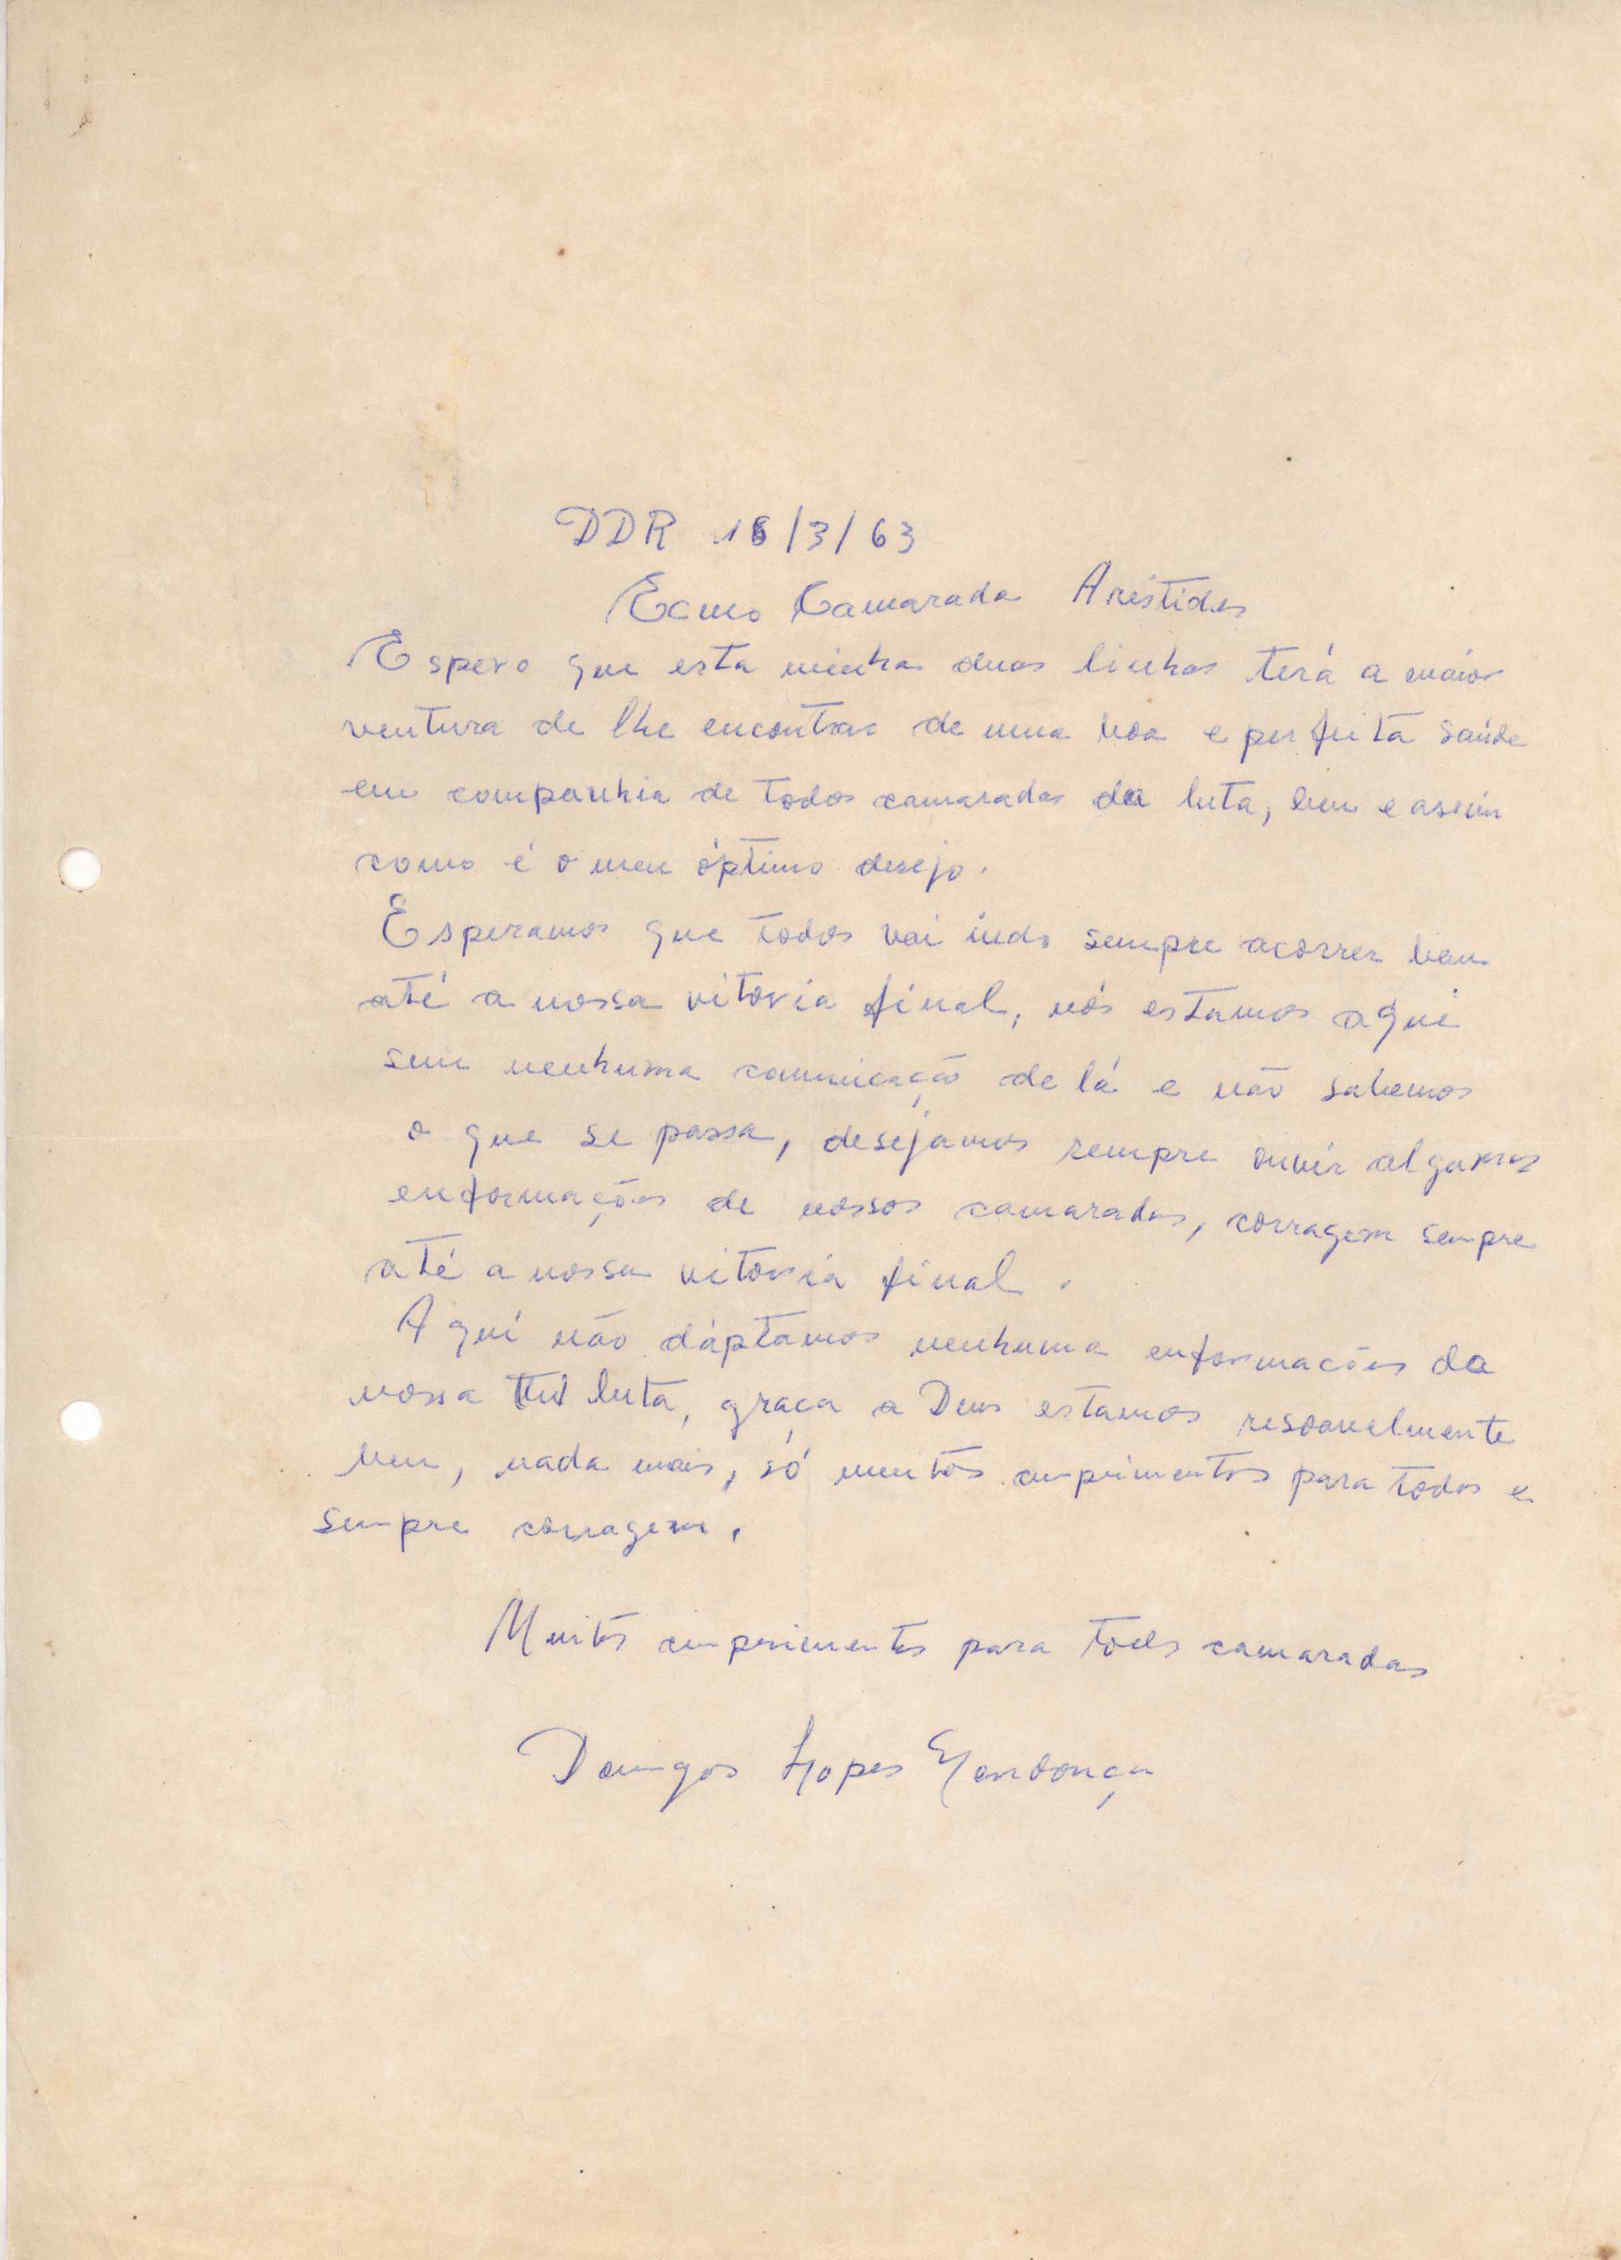 DDR 16/3/63
Excmo Camarada Aristides
Espero que esta minha duas linhas terá a maior
ventura de lhe encontrar de uma boa e perfeita saúde
em companhia de todos camaradas da luta, bem e assim
como é o meu óptimo desejo.
Esperamos que todos vai indo sempre acorrer bem
até a nossa vitoria final, nós estamos aqui
sem nenhuma comunicação de lá e não sabemos
o que se passa, desejamos sempre ouvir algumas
enformações de nossos camaradas, corragem sempre
até a nossa vitoria final.
Aqui não dáptamos nenhuma enformacões da
nossa luta, graça a Deus estamos resoavelmente
bem, nada mais, só muitos cumprimentos para todos e
sempre corragem.
Muitos cumprimentos para todos camaradas
Domingos Lopes Mendonça